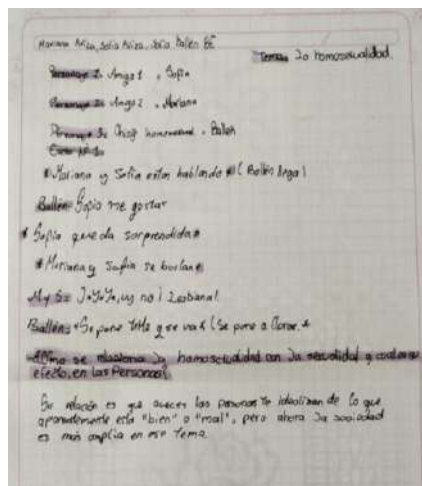 Mariana Ariza, Sofia Ariza, Sofia Ballen 8E
Tema: La homosexualidad.
Personaje 1: Amiga 1, Sofia
Personaje 2: Amiga 2, Mariana
Personaje 3: Chica homosexual, Ballen
*Mariana y Sofia estan hablando* (Ballen llega)
Ballen: Sofia me gustas
*Sofia queda sorprendida*
*Mariana y Sofia se burlan*
M y S: JaJaJa, uy no ¡ Lesbiana!
Ballen: *Se pone triste y se va* (Se pone a llorar.*
¿Cómo se relaciona la homosexualidad con la sexualidad y cual es su
efecto, en las Personas?
Su relación es que aveces las personas te idealizan de lo que
aparentemente esta "bien" o "mal", pero ahora la sociedad
es más amplia en ese tema.